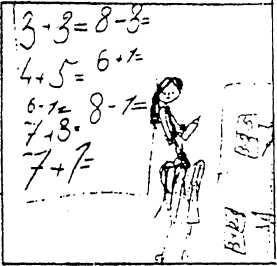 3+3= 8-3=
4+5= 6+1=
6-1= 8-1=
7+3=
7+1=